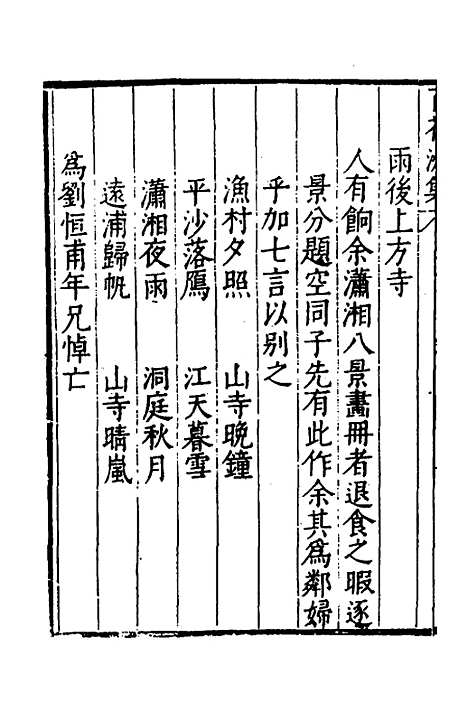 雨後上方寺
人有餉余瀟湘八景畫冊者退食之暇逐
景分題空同子先有此作余其為鄰婦
乎加七言以别之
漁村夕照　山寺晚鐘
平沙落鴈　江天暮雪
瀟湘夜雨　洞庭秋月
遠浦歸帆　山寺晴嵐
為劉恒甫年兄悼亡